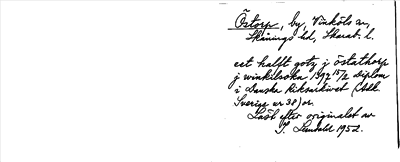 Östorp, by, Vinköls sn,
Skånings hd, Skarab. l.
eet halfft gotz j östathorp
j winkilsoka 1392 15/2 diplom
i Danska Riksarkivet (Afd.
Sverige nr 30) or.
Läst efter originalet av
I. Lundahl 1952.